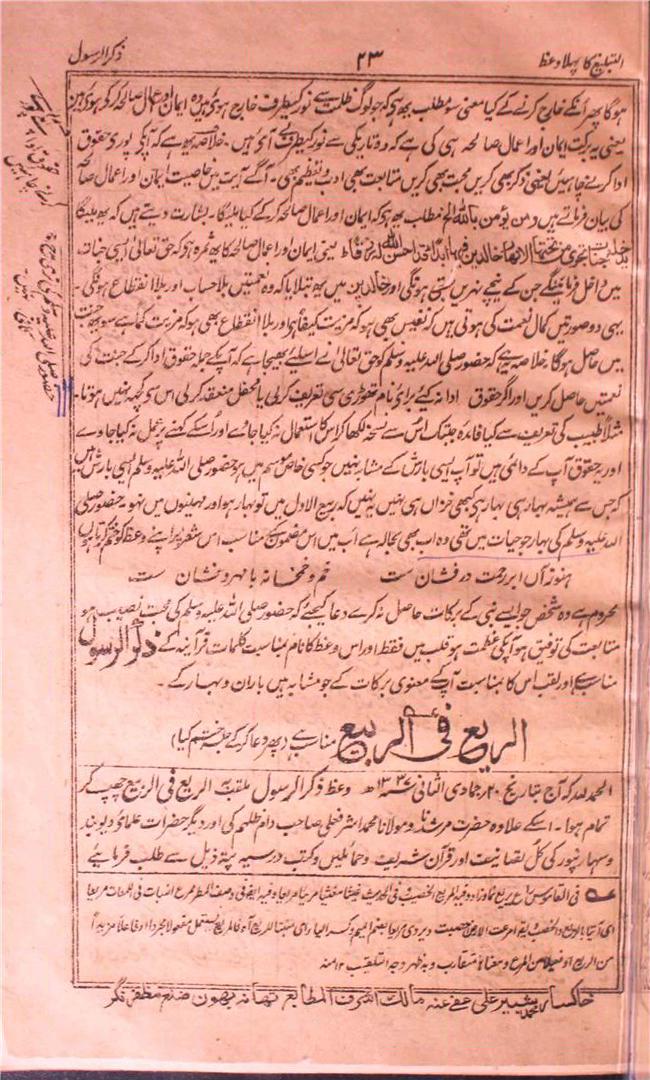 التبلیغ کا پہلا وعظ
۲۳
ذکر الرسول
ہوگا پھر انکے خارج کرنے کے کیا معنی سو مطلب یہ ہے کہ جو لوگ ظلمت سے نور کیطرف خارج ہوئے ہیں وہ ایمان و اعمال صالحہ کر کے ہوئے ہیں
یعنی یہ برکت ایمان اور اعمال صالحہ ہی کی ہے کہ وہ تاریکی سے نور کیطرف آئے ہیں۔ خلاصہ یہ ہے کہ آپکے پورے حقوق
ادا کرنے چاہئیں یعنی ذکر بھی کریں محبت بھی کریں متابعت بھی ادب و تعظیم بھی۔ آگے آیت میں خاصیت ایمان اور اعمال صالحہ
کی بیان فرماتے ہیں ومن یؤمن باللہ الخ مطلب یہ ہے کہ ایمان اور اعمال صالحہ کر کے کیا ملیگا۔ بشارت دیتے ہیں کہ یہ ملیگا
یدخلہ جنات تجری من تحتہا الانہار خالدین فیہا ابدا قد احسن اللہ لہ رزقا یعنی ایمان اور اعمال صالحہ کا یہ ثمرہ ہوگا کہ حق تعالی ایسی جنات
میں داخل فرمائینگے جن کے نیچے نہریں بہتی ہونگی اور خالدین میں یہ بتلایا کہ وہ نعمتیں بلا حساب اور بلا انقطاع ہونگی۔
یہی دو صورتیں کمال نعمت کی ہوتی ہیں کہ نفیس بھی ہو کہ مزیت کیفاً ہے اور بلا انقطاع بھی ہو کہ مزیت کماً ہے سو یہ جنت
میں حاصل ہوگا خلاصہ یہ ہے کہ حضور صلی اللہ علیہ وسلم کو حق تعالی نے اسلئے بھیجا ہے کہ آپکے جملہ حقوق ادا کر کے جنت کی
نعمتیں حاصل کریں اور اگر حقوق ادا نہ کیئے برائے نام تھوڑی سی تعریف کر لی یا محفل منعقد کر لی اس سے کچھ نہیں ہوتا۔
مثلاً طبیب کی تعریف سے کیا فائدہ جبتک اس سے نسخہ لکھا کر اس کا استعمال نہ کیا جائے اور اُسکے کہنے پر عمل نہ کیا جاوے
اور یہ حقوق آپ کے دائمی ہیں تو آپ ایسی بارش کے مشابہ نہیں جو کسی خاص موسم میں ہو حضور صلی اللہ علیہ وسلم ایسی بارش ہیں
کہ جس سے ہمیشہ بہار ہی بہار ہے کبھی خزاں ہی نہیں یہ نہیں کہ ربیع الاول میں تو بہار ہو اور مہینوں میں نہو۔ حضور صلی
اللہ علیہ وسلم کی بہار جو حیات میں تھی وہ اب بھی بحالہ ہے اب میں اس مضمون کے مناسب اس شعر پر اپنے وعظ کو ختم کرتا ہوں
ہنوز آں ابر رحمت در فشان ست خم و خمخانہ با مہر و نشان ست
محروم ہے وہ شخص جو ایسے نبی کے برکات حاصل نہ کرے دعا کیجئے کہ حضور صلی اللہ علیہ وسلم کی محبت نصیب ہو
متابعت کی توفیق ہو آپکی عظمت ہو قلب میں فقط اور اس وعظ کا نام بمناسبت کلمات قرآنیہ کے ذکر الرسول
مناسب ہے اور لقب اس کا بمناسبت آپ کے معنوی برکات کے جو مشابہ ہیں باران و بہار کے۔
الریع فی الربیع مناسب ہے (پھر دعا کر کے جلسہ ختم کیا)
الحمد للہ کہ آج بتاریخ ۲۰ جمادی الثانی ۱۳۳۷ھ وعظ ذکر الرسول ملقب بہ الریع فی الربیع چھپ کر
تمام ہوا۔ اسکے علاوہ حضرت مرشدنا و مولانا محمد اشرف علی صاحب دام ظلہم کی اور دیگر حضرات علمائے دیوبند
و سہارنپور کی کل تصانیف اور قرآن شریف و حمائلیں و کتب درسیہ پتہ ذیل سے طلب فرمائیے
خاکسار محمد شبیر علی عفی عنہ مالک اشرف المطابع تھانہ بھون ضلع مظفر نگر